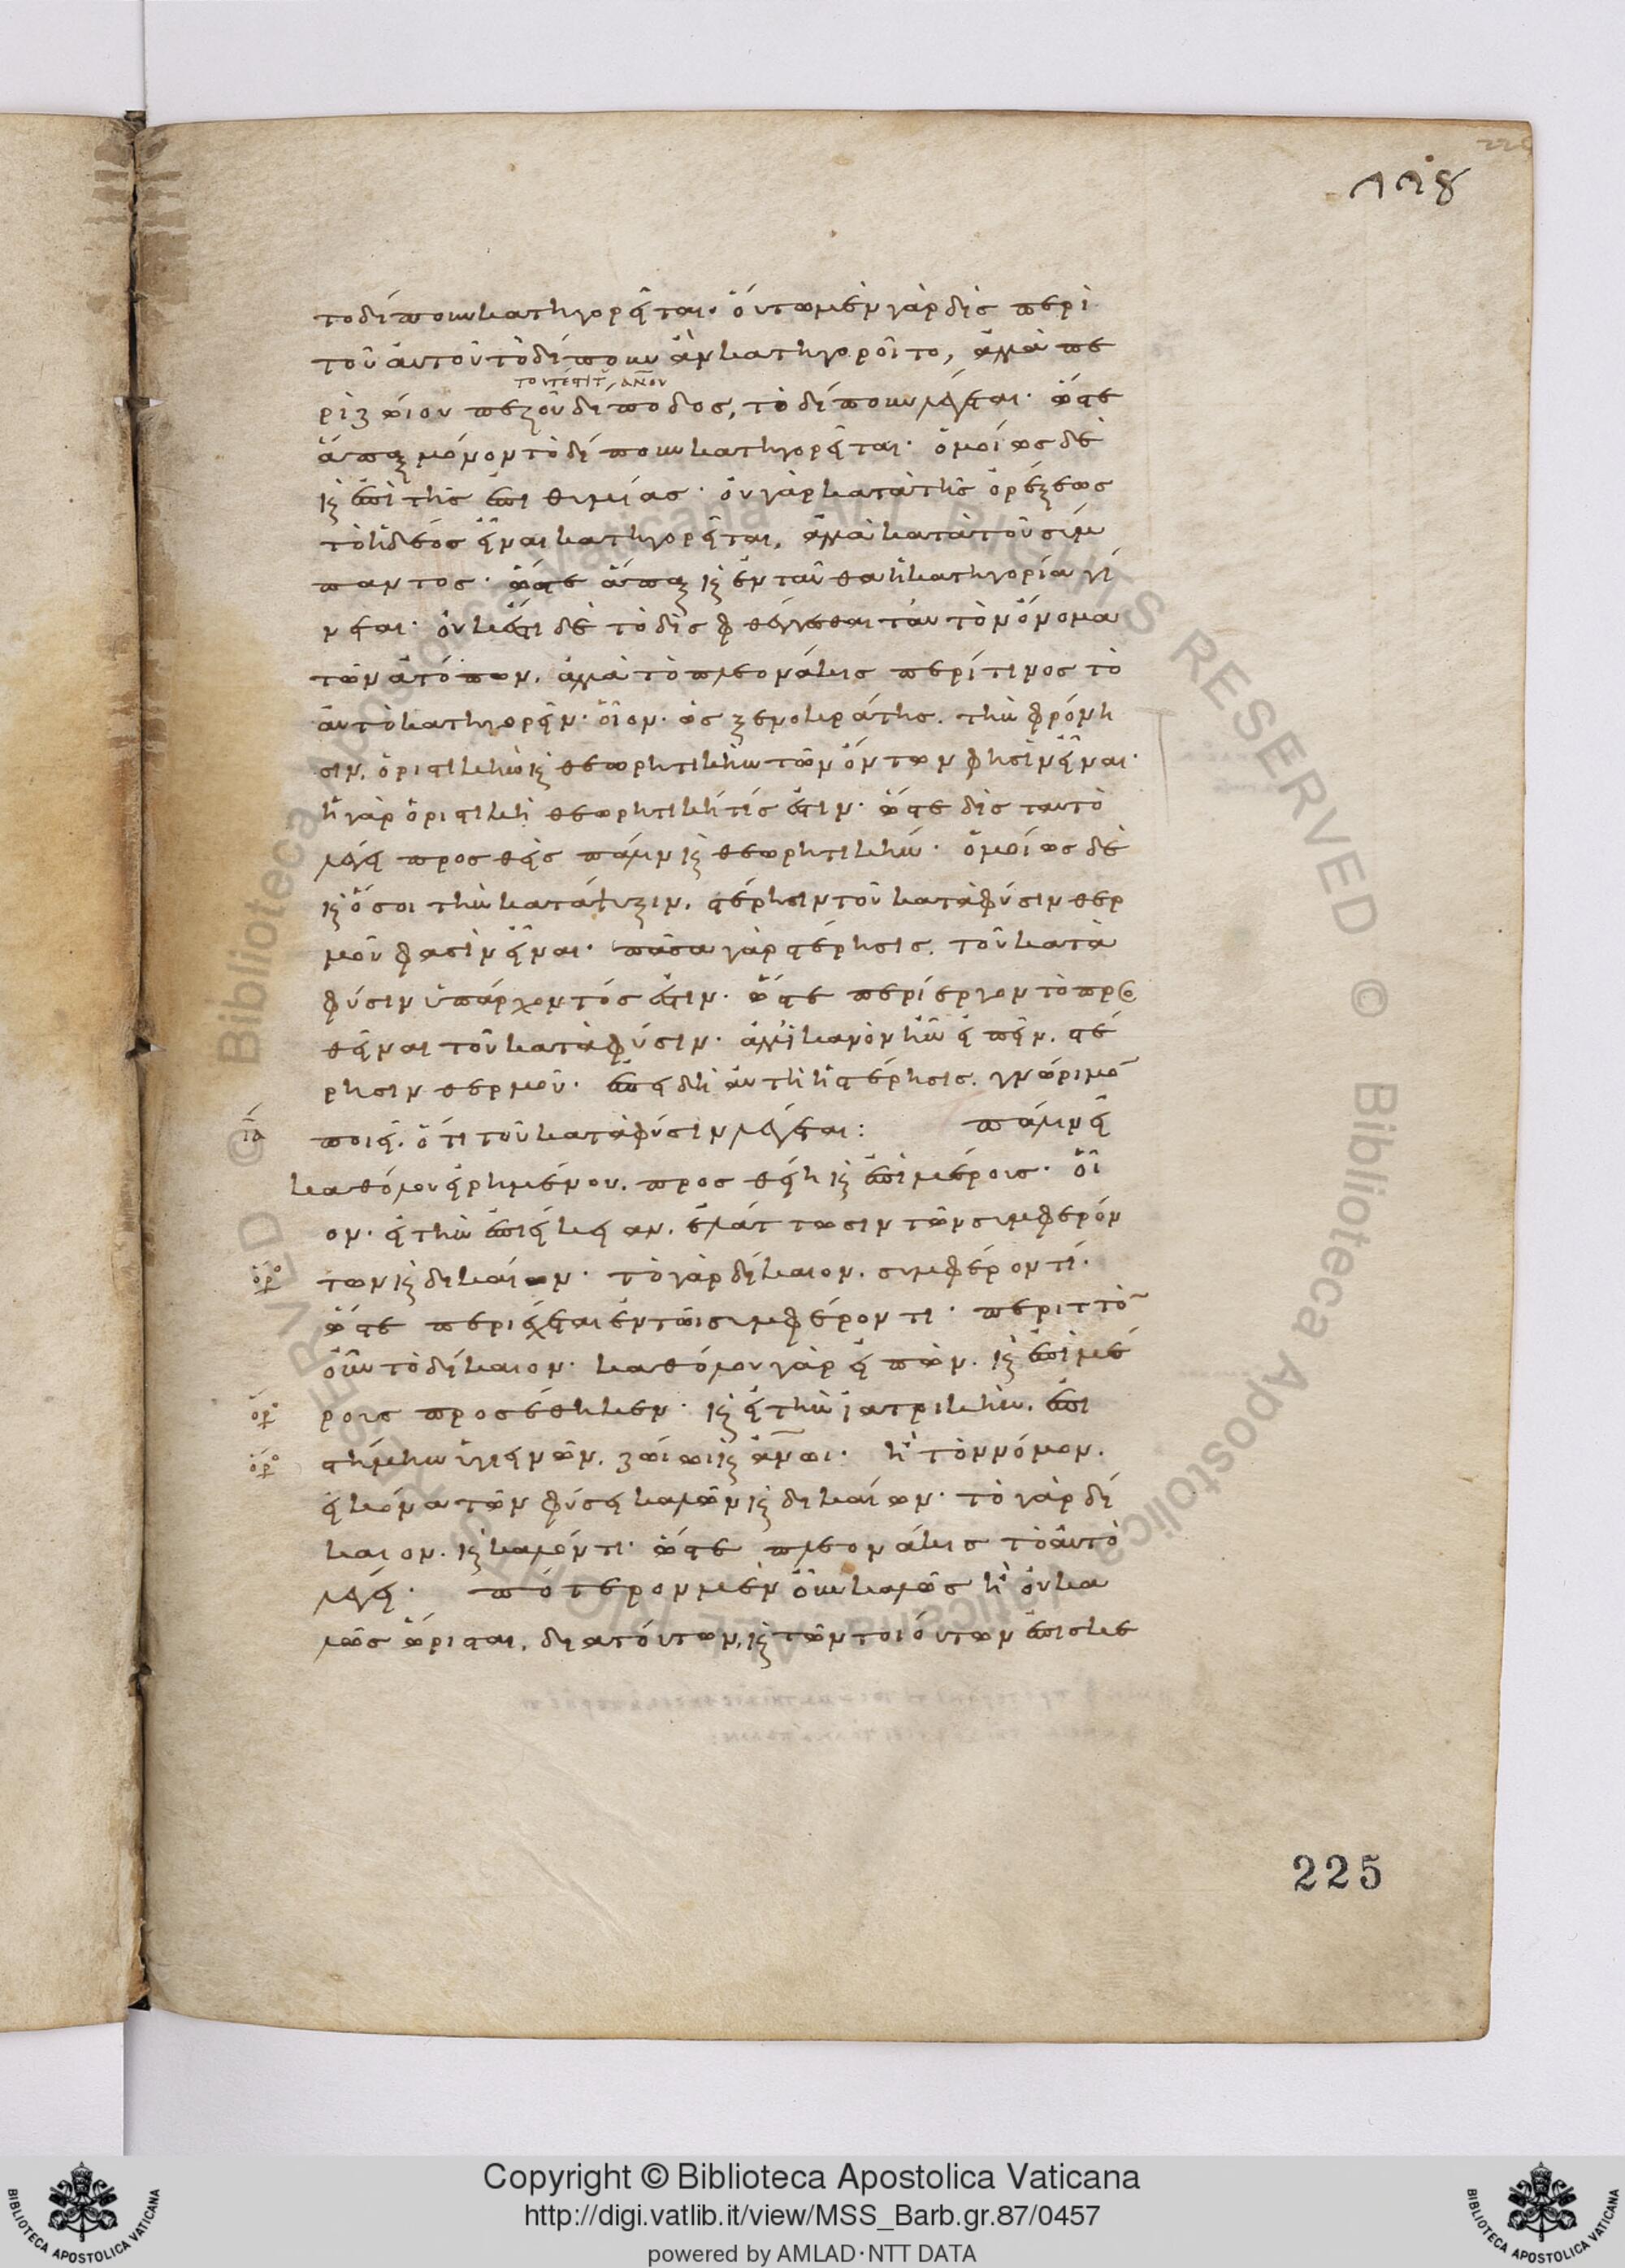 225
118
το δίπουν κατηγορεῖται· οὕτω μὲν γὰρ δὶς περὶ
τοῦ αὐτοῦ τὸ δίπουν ἂν κατηγοροῖτο, ἀλλὰ πε
τουτέστι τ(οῦ) ἀν(θρώπ)ου
ρὶ ζώιου πεζοῦ δίποδος, τὸ δίπουν λέγεται· ὥστε
ἅπαξ μόνον τὸ δίπουν κατηγορεῖται· ὁμοίως δὲ
κ(αὶ) ἐπὶ τῆς ἐπιθυμίας· οὐ γὰρ κατὰ τῆς ὀρέξεως
τὸ ἡδέος εἶναι κατηγορεῖται, ἀλλὰ κατὰ τοῦ σύμ
παντος· ὥστε ἅπαξ κ(αὶ) ἐνταῦθα ἡ κατηγορία γί
νεται· οὐκ ἔστι δὲ τὸ δὶς φθέγξασθαι ταὐτὸν ὄνομα
τῶν ἀτόπων, ἀλλὰ τὸ πλεονάκις περί τινος τὸ
αὐτὸ κατηγορεῖν· οἷον· ὡς ξενοκράτης, τὴν φρόνη
σιν, ὁριστικὴν κ(αὶ) θεωρητικὴν τῶν ὄντων φησὶν εἶναι·
ἡ γὰρ ὁριστικὴ θεωρητική τίς ἐστιν· ὥστε δὶς ταυτὸ
λέγει προσθεὶς πάλιν κ(αὶ) θεωρητικήν· ὁμοίως δὲ
κ(αὶ) ὅσοι τὴν κατάψυξιν, στέρησιν τοῦ κατὰ φύσιν θερ
μοῦ φασὶν εἶναι· πᾶσα γὰρ στέρησις, τοῦ κατὰ
φύσιν ὑπάρχοντός ἐστιν· ὥστε περίεργον τὸ προσ
θεῖναι τοῦ κατὰ φύσιν· ἀλλ' ἱκανὸν ἦν εἰπεῖν, στέ
ρησιν θερμοῦ· ἐπειδὴ αὐτὴ ἡ στέρησις, γνώριμο(ν)
ποιεῖ, ὅτι τοῦ κατὰ φύσιν λέγεται: πάλιν εἰ
καθόλου εἰρημένου, προσθείη κ(αὶ) ἐπὶ μέρους· οἷ
ον· εἰ τὴν ἐπιείκειαν, ἐλάττωσιν τῶν συμφερόν
ὅρο(ς)
των κ(αὶ) δικαίων· τὸ γὰρ δίκαιον, συμφέρον τί·
ὥστε περιέχεται ἐν τῶι συμφέροντι· περιττὸ(ν)
οὖν τὸ δίκαιον· καθόλου γὰρ εἰπὼν, κ(αὶ) ἐπὶ μέ
ὅρο(ς)
ρους προσέθηκεν· κ(αὶ) εἰ τὴν ἰατρικὴν, ἐπι
ὅρο(ς)
στήμην ὑγιεινῶν, ζώιωι κ(αὶ) ἀν(θρώπ)ωι· ἢ τὸν νόμον,
εἰκόνα τῶν φύσει καλῶν κ(αὶ) δικαίων· τὸ γὰρ δί
καιον, κ(αὶ) καλόν τι· ὥστε πλεονάκις τὸ αὐτὸ
λέγει· πότερον μὲν οὖν καλῶς ἢ οὐ κα
λῶς ὥρισται, διὰ τούτων, κ(αὶ) τῶν τοιούτων ἐπισκε
225
Copyright © Biblioteca Apostolica Vaticana
http://digi.vatlib.it/view/MSS_Barb.gr.87/0457
powered by AMLAD·NTT DATA